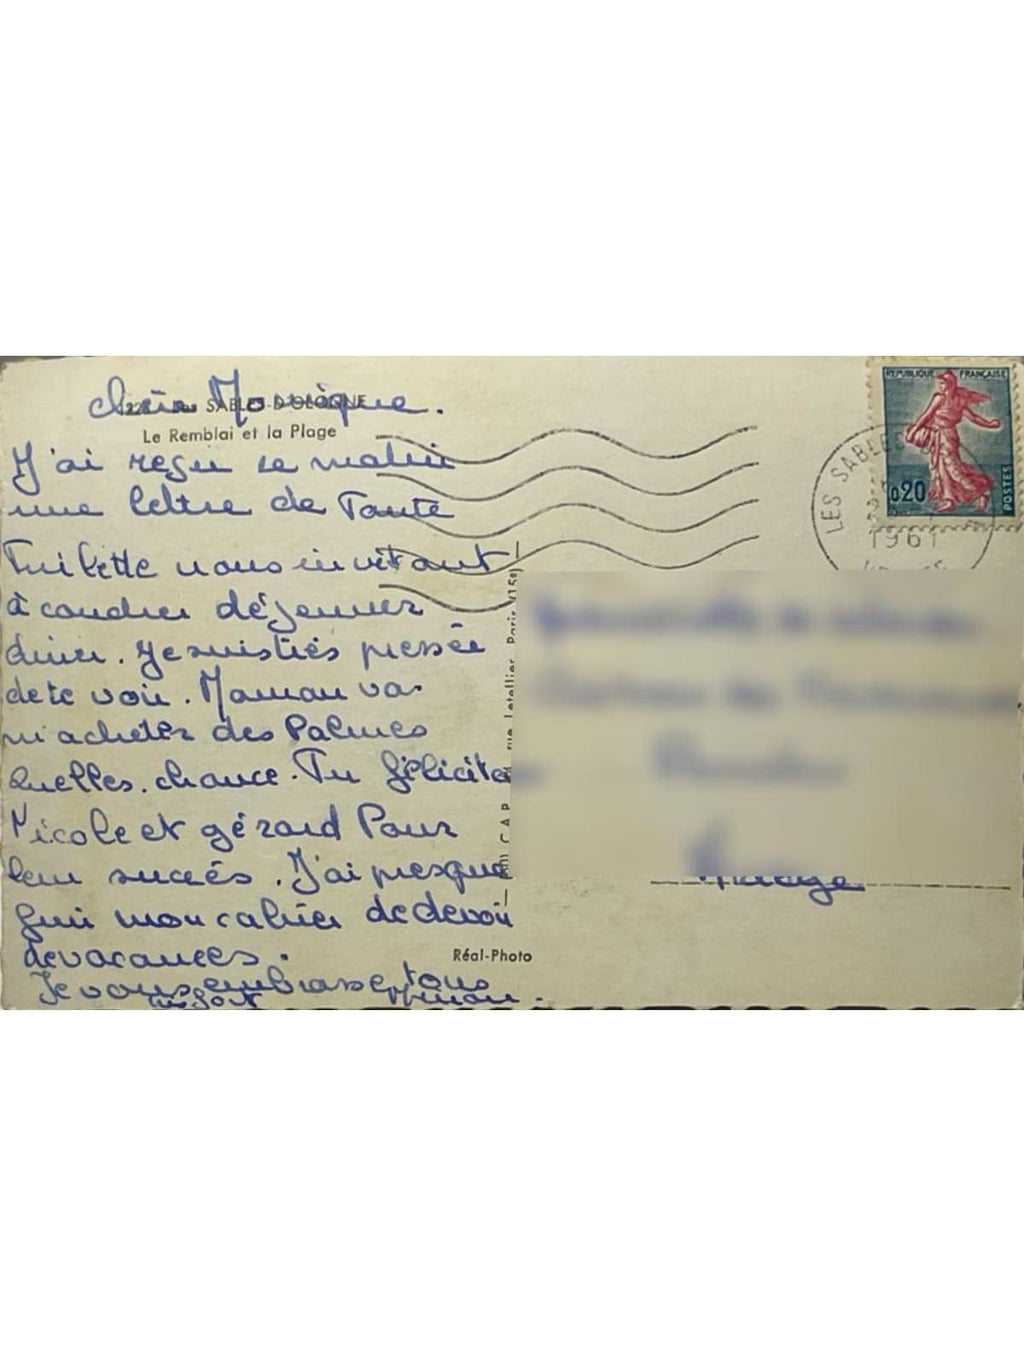 Chère Monique.
SABLES-D'OLONNE
Le Remblai et la Plage
J'ai reçu ce matin
une lettre de Tante
nous invitant
à coucher déjeuner
diner. Je suis très pressée
de te voir. Maman va
m'acheter des Palmes
quelles. chance. Tu féliciteras
Nicole et gérard Pour
leur succés. J'ai presque
fini mon cahier de devoir
de vacances.
Je vous embrasse tous
bien fort
REPUBLIQUE FRANÇAISE
0,20
POSTES
LES SABLES
1961
rue Letellier, Paris (15e)
C.A.P.
Réal-Photo